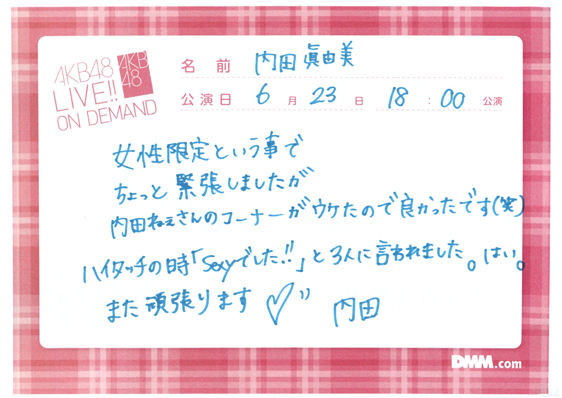 AKB48
LIVE!!
ON DEMAND
AKB
48
名前 内田眞由美
公演日 6月23日 18:00公演
女性限定という事で
ちょっと緊張しましたが
内田ねぇさんのコーナーがウケたので良かったです(笑)
ハイタッチの時「Sexyでした!!」と3人に言われました。はい。
また頑張ります♡〃 内田
DMM.com